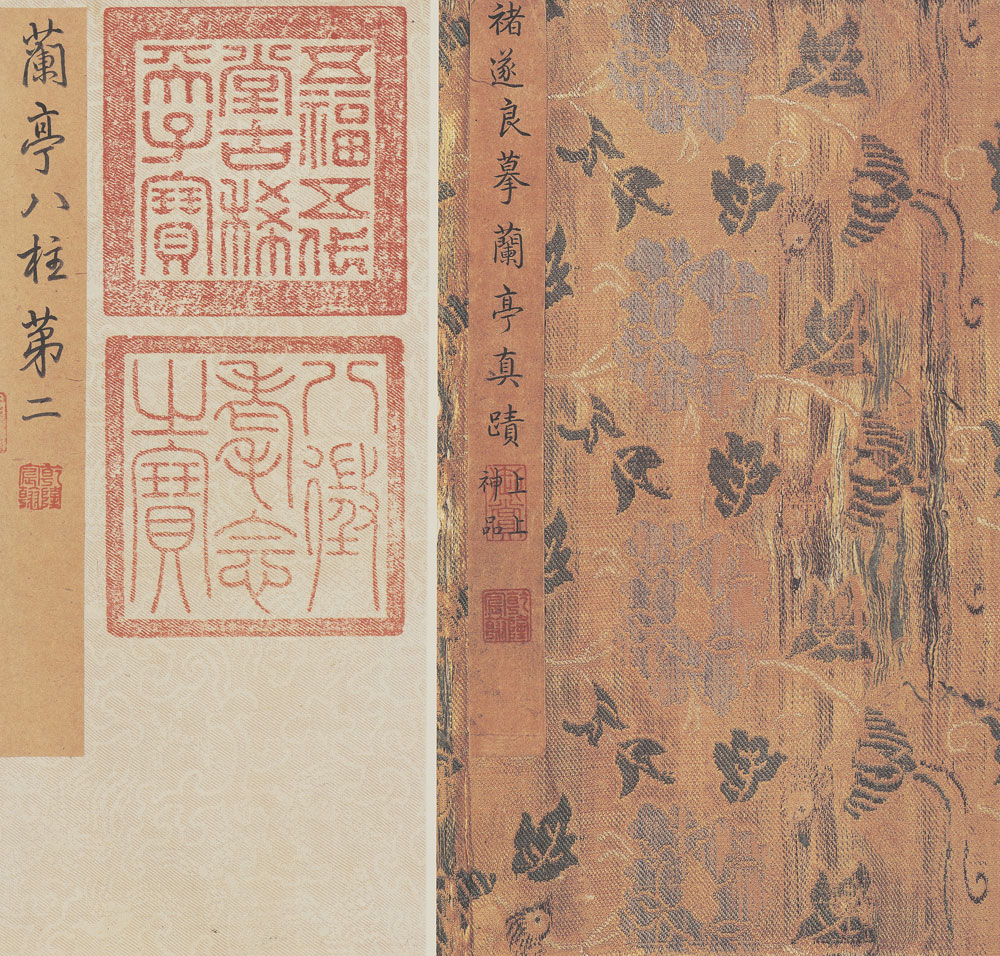 褚遂良摹蘭亭真蹟
上上
神品
乾隆
宸翰
五福五代
堂古稀
天子寶
八徵
耄念
之寶
蘭亭八柱苐二
乾隆
宸翰